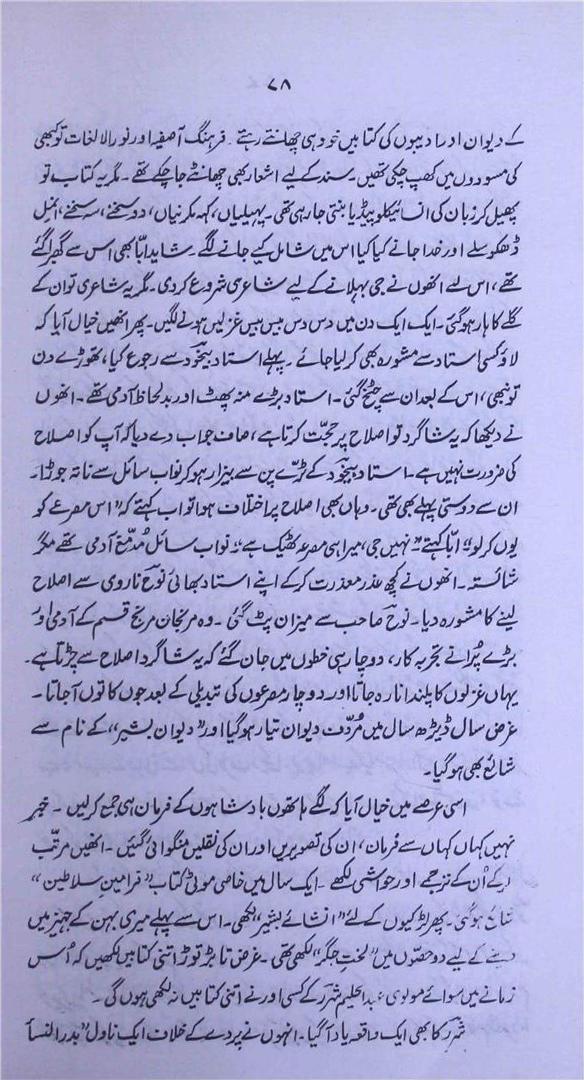 ۷۸
کے دیوان اور ادیبوں کی کتابیں خود ہی چھانتے رہتے۔ فرہنگ آصفیہ اور نور الالغات تو کبھی
کی مسودوں میں کھپ چکی تھیں۔ سند کے لیے اشعار بھی چھانٹے جا چکے تھے۔ مگر یہ کتاب تو
پھیل کر زبان کی انسائیکلوپیڈیا بنتی جا رہی تھی۔ پہیلیاں، کہہ مکرنیاں، دوسخنے، سہ سخنے، انمل
ڈھکوسلے اور خدا جانے کیا کیا اس میں شامل کیے جانے لگے۔ شاید ابّا بھی اس سے گھبرا گئے
تھے، اس لئے انھوں نے جی بہلانے کے لیے شاعری شروع کر دی۔ مگر یہ شاعری تو ان کے
گلے کا ہار ہو گئی۔ ایک ایک دن میں دس دس بیس بیس غزلیں ہونے لگیں۔ پھر انھیں خیال آیا کہ
لاؤ کسی استاد سے مشورہ بھی کر لیا جائے۔ پہلے استاد بیخود سے رجوع کیا، تھوڑے دن
تو نبھی، اس کے بعد ان سے چٹخ گئی۔ استاد بڑے منہ پھٹ اور بدلحاظ آدمی تھے۔ انھوں
نے دیکھا کہ یہ شاگرد تو اصلاح پر حجّت کرتا ہے، صاف جواب دے دیا کہ آپ کو اصلاح
کی ضرورت نہیں ہے۔ استاد بیخود کے ٹرّے پن سے بیزار ہو کر نواب سائل سے ناتہ جوڑا۔
ان سے دوستی پہلے بھی تھی۔ وہاں بھی اصلاح پر اختلاف ہوا نواب کہتے کہ "اس مصرعے کو
یوں کر لو" ابّا کہتے "نہیں جی، میرا ہی مصرعہ ٹھیک ہے"۔ نواب سائل مُدمّغ آدمی تھے مگر
شائستہ۔ انھوں نے کچھ عذر معذرت کر کے اپنے استاد بھائی نوح ناروی سے اصلاح
لینے کا مشورہ دیا۔ نوح صاحب سے میزان پٹ گئی۔ وہ مرنجان مرنج قسم کے آدمی اور
بڑے پُرانے تجربہ کار، دو چار ہی خطوں میں جان گئے کہ یہ شاگرد اصلاح سے چڑتا ہے۔
یہاں غزلوں کا پلندا نارہ جاتا اور دو چار مصرعوں کی تبدیلی کے بعد جوں کا توں آ جاتا۔
غرض سال ڈیڑھ سال میں مُردّف دیوان تیار ہو گیا اور "دیوان بشیر" کے نام سے
شائع بھی ہو گیا۔
اسی عرصے میں خیال آیا کہ لگے ہاتھوں بادشاہوں کے فرمان ہی جمع کر لیں۔ خبر
نہیں کہاں کہاں سے فرمان، ان کی تصویریں اور ان کی نقلیں منگوائی گئیں۔ انھیں مرتّب
کے اُن کے ترجمے اور حواشی لکھے۔ ایک سال میں خاصی موٹی کتاب "فرامین سلاطین"
شائع ہو گئی۔ پھر لڑکیوں کے لئے "انشائے بشیر" لکھی۔ اس سے پہلے میری بہن کے جہیز میں
دینے کے لیے دو حصّوں میں "لخت جگر" لکھی تھی۔ غرض تابڑ توڑ اتنی کتابیں لکھیں کہ اُس
زمانے میں سوائے مولوی عبدالحلیم شرر کے کسی اور نے اتنی کتابیں نہ لکھی ہوں گی۔
شرر کا بھی ایک واقعہ یاد آ گیا۔ انہوں نے پردے کے خلاف ایک ناول "بدر النسأ